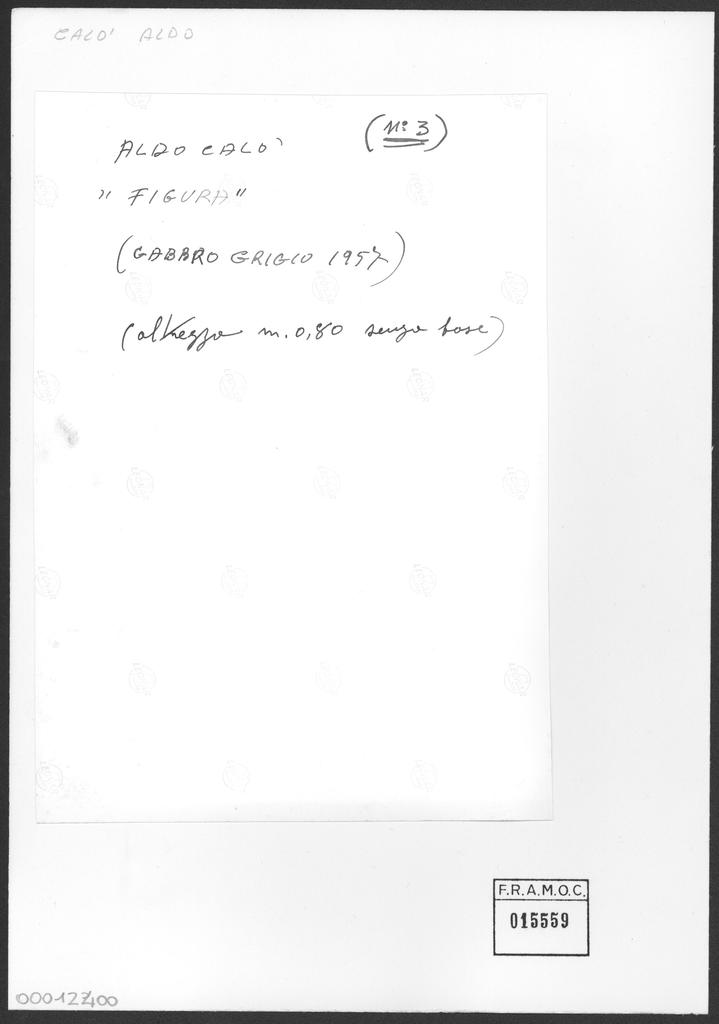 CALO' ALDO
(N° 3)
ALDO CALO'
"FIGURA"
(GABBRO GRIGIO 1957)
(altezza m. 0,80 senza base)
F.R.A.M.O.C.
015559